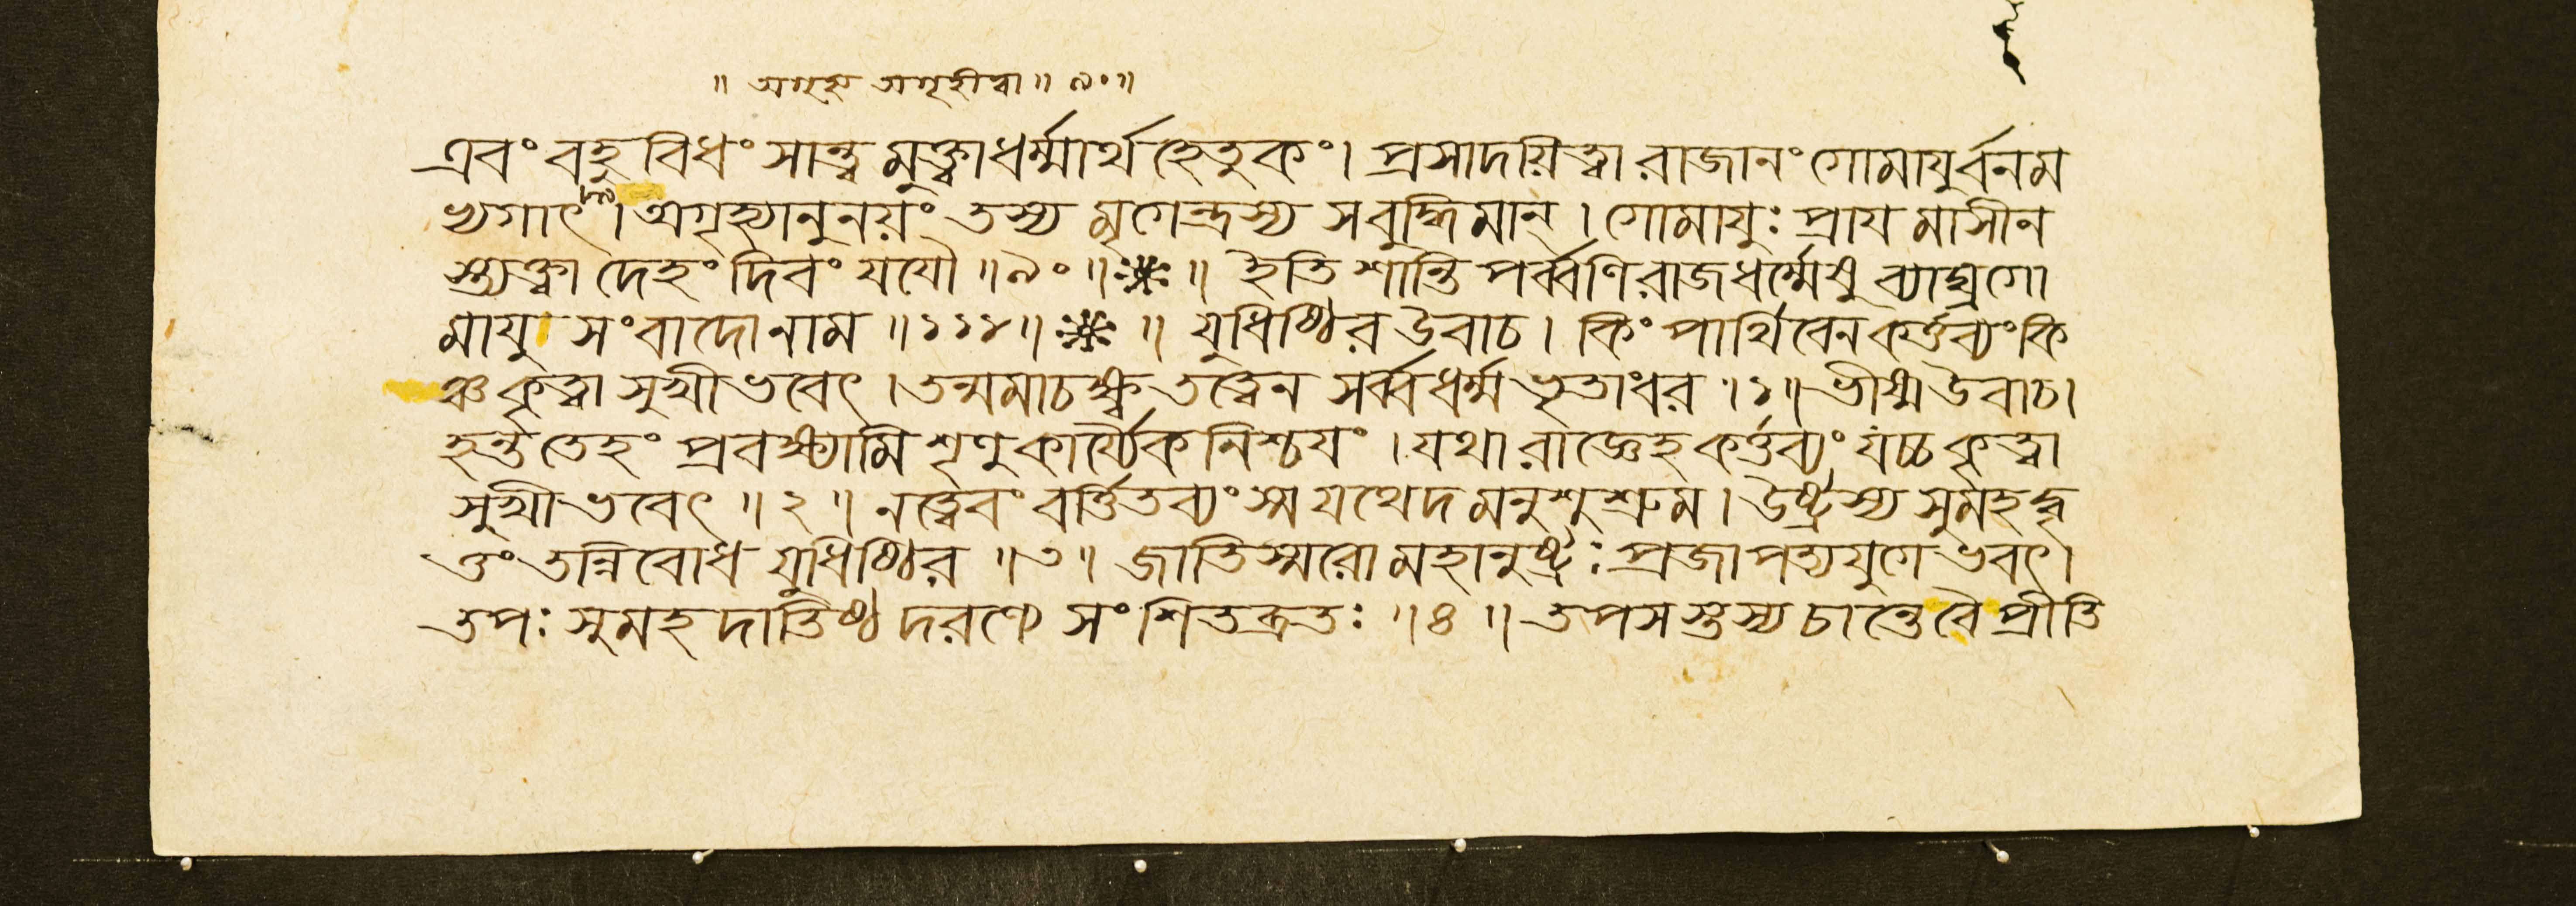 ॥ অগৃহ্য অগৃহীত্বা ॥ ৯০ ॥
এবং বহুবিধং সান্ত্বমুক্ত্বা ধর্ম্মার্থহেতুকং। প্রসাদয়িত্বা রাজানং গোমায়ুর্বনম
ভ্যগাৎ। অগৃহ্যানুনয়ং তস্য মৃগেন্দ্রস্য সবুদ্ধিমান্। গোমাযুঃ প্রায মাসীন
স্ত্যক্ত্বা দেহং দিবং যযৌ ॥ ৯০ ॥ ※ ॥ ইতি শান্তিপর্ব্বণি রাজধর্ম্মেষু ব্যাঘ্রগো
মাযু সংবাদোনাম ॥ ১১১ ॥ ※ ॥ যুধিষ্ঠির উবাচ। কিং পার্থিবেন কর্ত্তব্যং কি
ঞ্চ কৃত্বা সুখী ভবেৎ। তন্মমাচক্ষ্ব তত্ত্বেন সর্ব্বধর্ম্মভৃতাংবর ॥ ১ ॥ ভীষ্ম উবাচ।
হন্ত তেহং প্রবক্ষ্যামি শৃণু কার্য্যৈকনিশ্চযং। যথা রাজ্ঞেহ কর্ত্তব্যং যচ্চ কৃত্বা
সুখী ভবেৎ ॥ ২ ॥ নত্বেবং বর্ত্তিতব্যং স্ম যথেদমনুশুশ্রুম। উষ্ট্রস্য সুমহদ্বৃ
ত্তং তন্নিবোধ যুধিষ্ঠির ॥ ৩ ॥ জাতিস্মরো মহানুষ্ট্রঃ প্রজাপত্যযুগেভবৎ।
তপঃ সুমহদাতিষ্ঠদরণ্যে সংশিতব্রতঃ ॥ ৪ ॥ তপসস্তস্য চান্তে বৈ প্রীতি